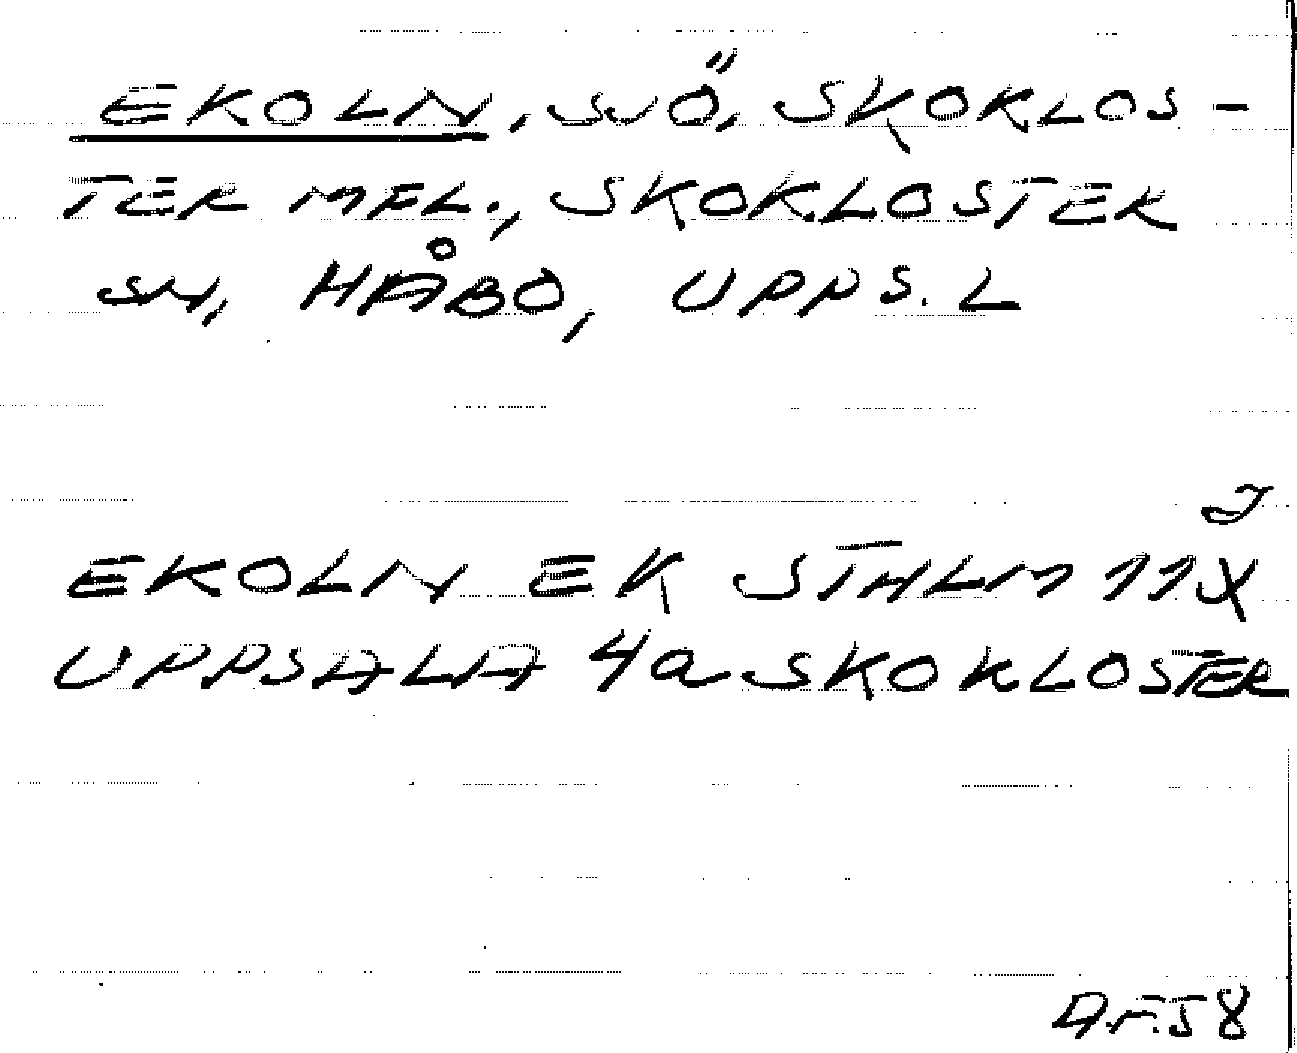 EKOLN, SJÖ, SKOKLOS-
TER MFL., SKOKLOSTER
SN, HÅBO, UPPS. L
J
EKOLN EK STHLM 11X
UPPSALA 4a SKOKLOSTER
A.F. 58